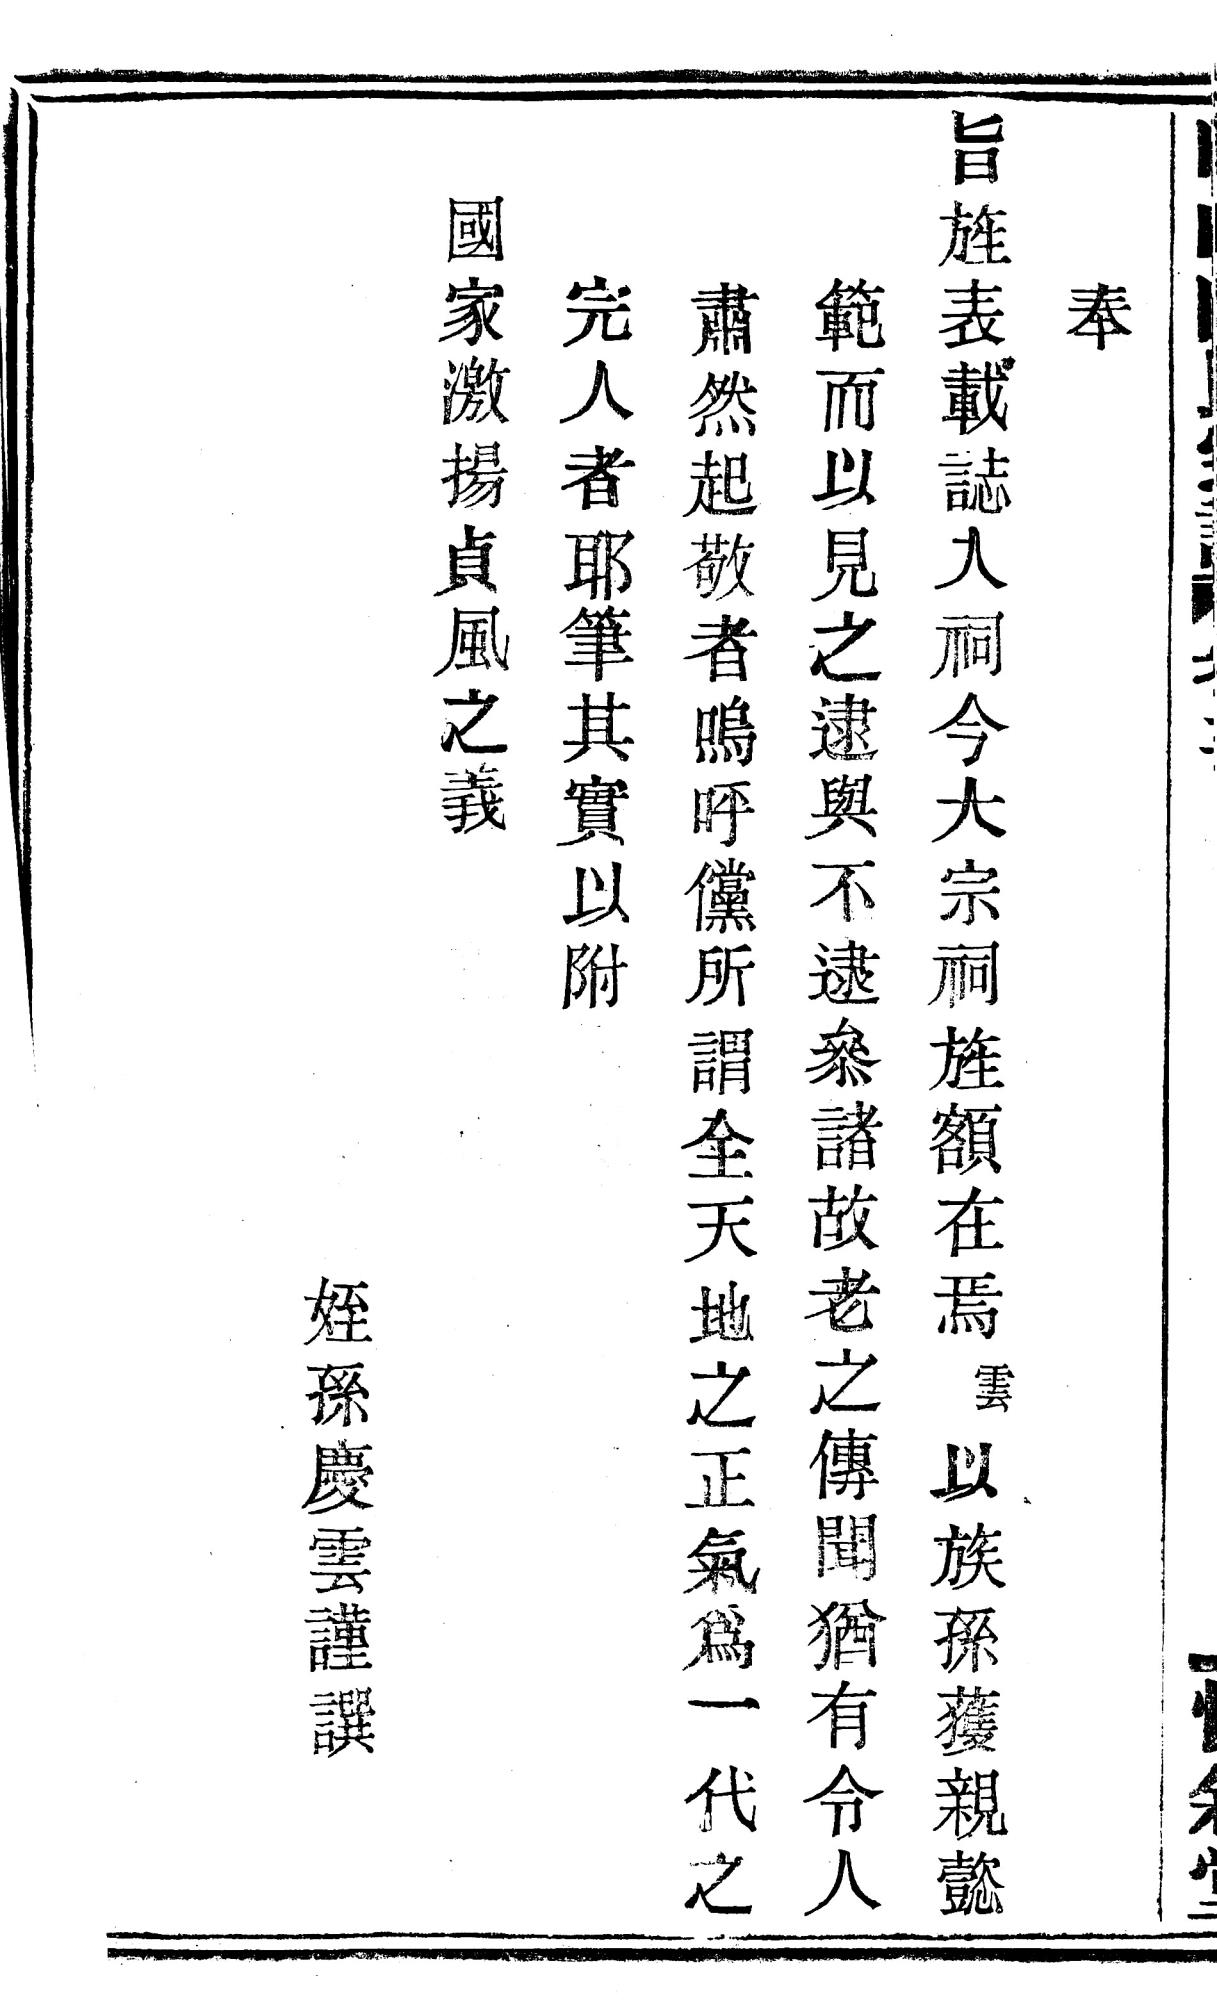 奉
旨旌表載誌入祠今大宗祠旌額在焉雲以族孫獲親懿
範而以見之逮與不逮叅諸故老之傳聞猶有令人
肅然起敬者嗚呼儻所謂全天地之正氣爲一代之
完人者耶筆其實以附
國家激揚貞風之義
姪孫慶雲謹譔